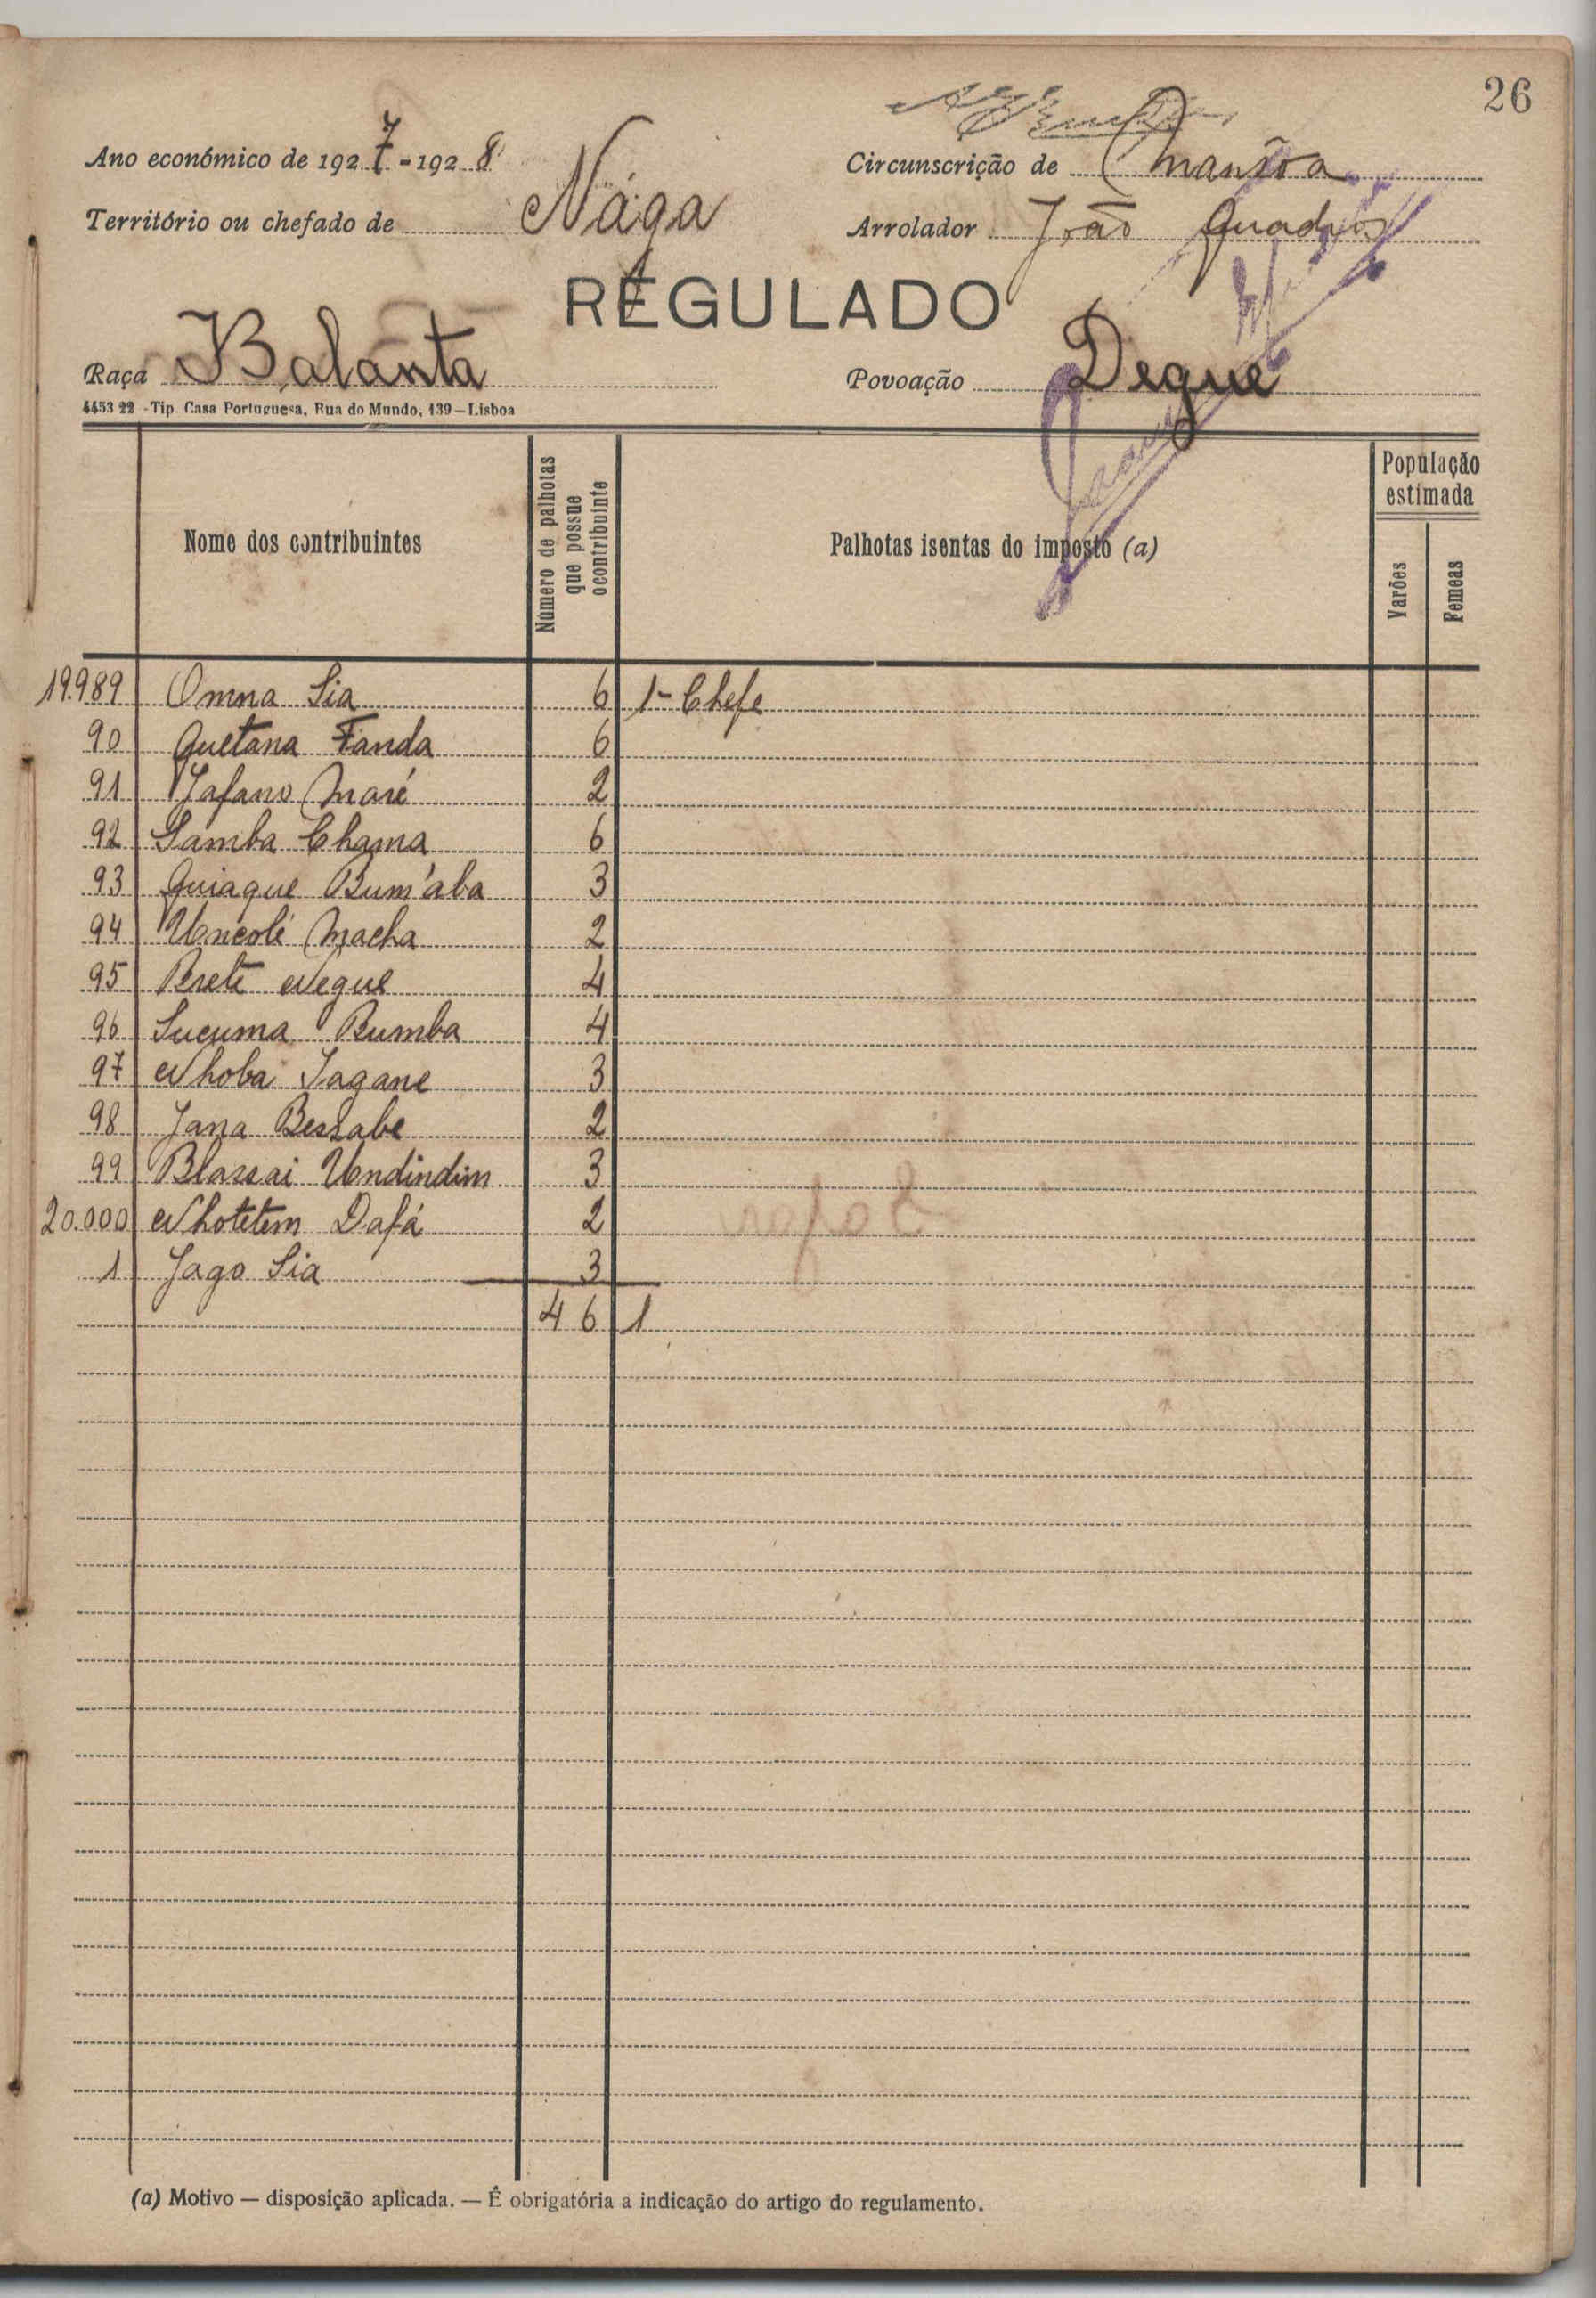 26
Ano económico de 1927-1928 Circunscrição de Mansôa
Território ou chefado de Nága Arrolador João Quadros
REGULADO
Raça Balanta Povoação Degue
4453 22 - Tip. Casa Portuguesa, Rua do Mundo, 139 — Lisboa
Nome dos contribuintes Número de palhotas que possue o contribuinte Palhotas isentas do imposto (a) População estimada Varões Femeas
19.989 Omna Sia 6 1 - Chefe
90 Quetana Fanda 6
91 Jafano Maré 2
92 Samba Chama 6
93 Quiaque Bum'aba 3
94 Uncolé Macha 2
95 Brete Negue 4
96 Sucuma Bumba 4
97 Nhoba Jagane 3
98 Jana Bessabe 2
99 Blassai Undindim 3
20.000 Nhotetem Dafá 2
1 Jago Sia 3
46 1
(a) Motivo — disposição aplicada. — É obrigatória a indicação do artigo do regulamento.